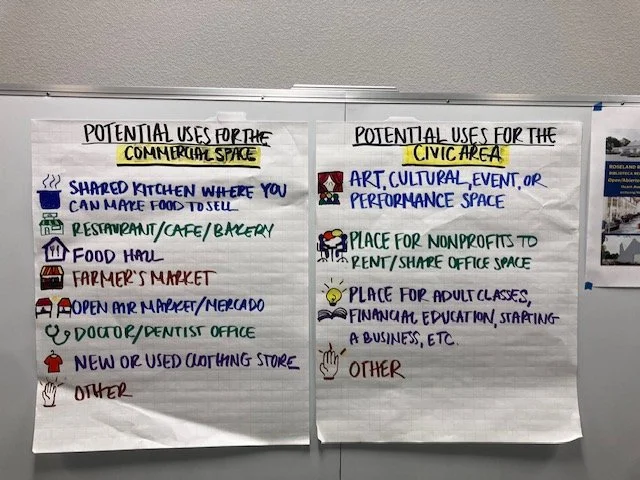 POTENTIAL USES FOR THE
COMMERCIAL SPACE
SHARED KITCHEN WHERE YOU
CAN MAKE FOOD TO SELL
RESTAURANT/CAFE/BAKERY
FOOD HALL
FARMER'S MARKET
OPEN AIR MARKET/MERCADO
DOCTOR/DENTIST OFFICE
NEW OR USED CLOTHING STORE
OTHER
POTENTIAL USES FOR THE
CIVIC AREA
ART, CULTURAL, EVENT, OR
PERFORMANCE SPACE
PLACE FOR NONPROFITS TO
RENT/SHARE OFFICE SPACE
PLACE FOR ADULT CLASSES,
FINANCIAL EDUCATION, STARTING
A BUSINESS, ETC.
OTHER
ROSELAND
BIBLIOTECA